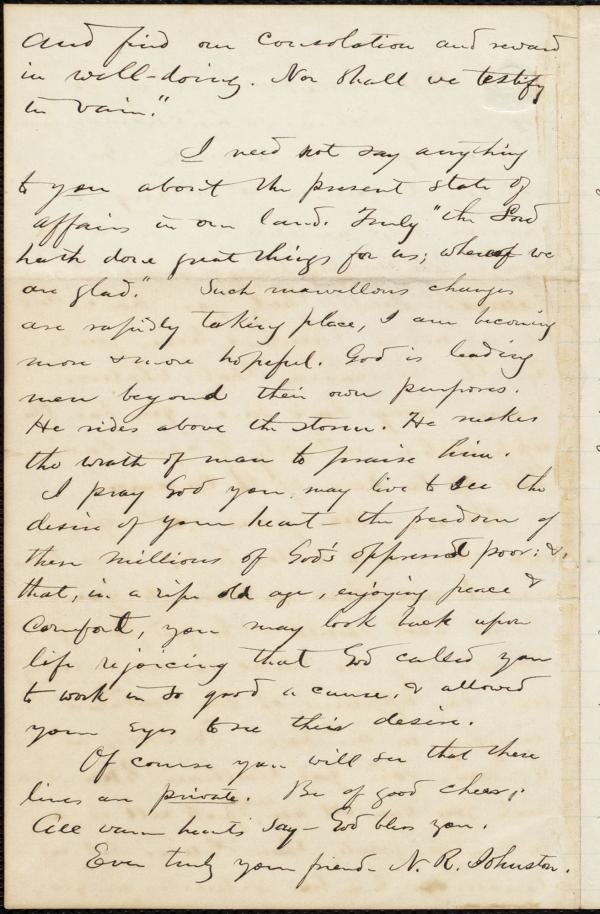 and find our consolation and reward
in well-doing. Nor shall we testify
in vain."
I need not say anything
to you about the present state of
affairs in our land. Truly "the Lord
hath done great things for us; whereof we
are glad." Such marvellous changes
are rapidly taking place, I am becoming
more & more hopeful. God is leading
men beyond their own purposes.
He rides above the storm. He makes
the wrath of man to praise him.
I pray God you may live to see the
desire of your heart – the freedom of
these millions of God's oppressed poor: &,
that, in a ripe old age, enjoying peace &
comfort, you may look back upon
life rejoicing that God called you
to work in so good a cause, & allowed
your eyes to see their desire.
Of course you will see that these
lines are private. Be of good cheer;
All warm hearts say – God bless you.
Ever truly your friend – N. R. Johnston.